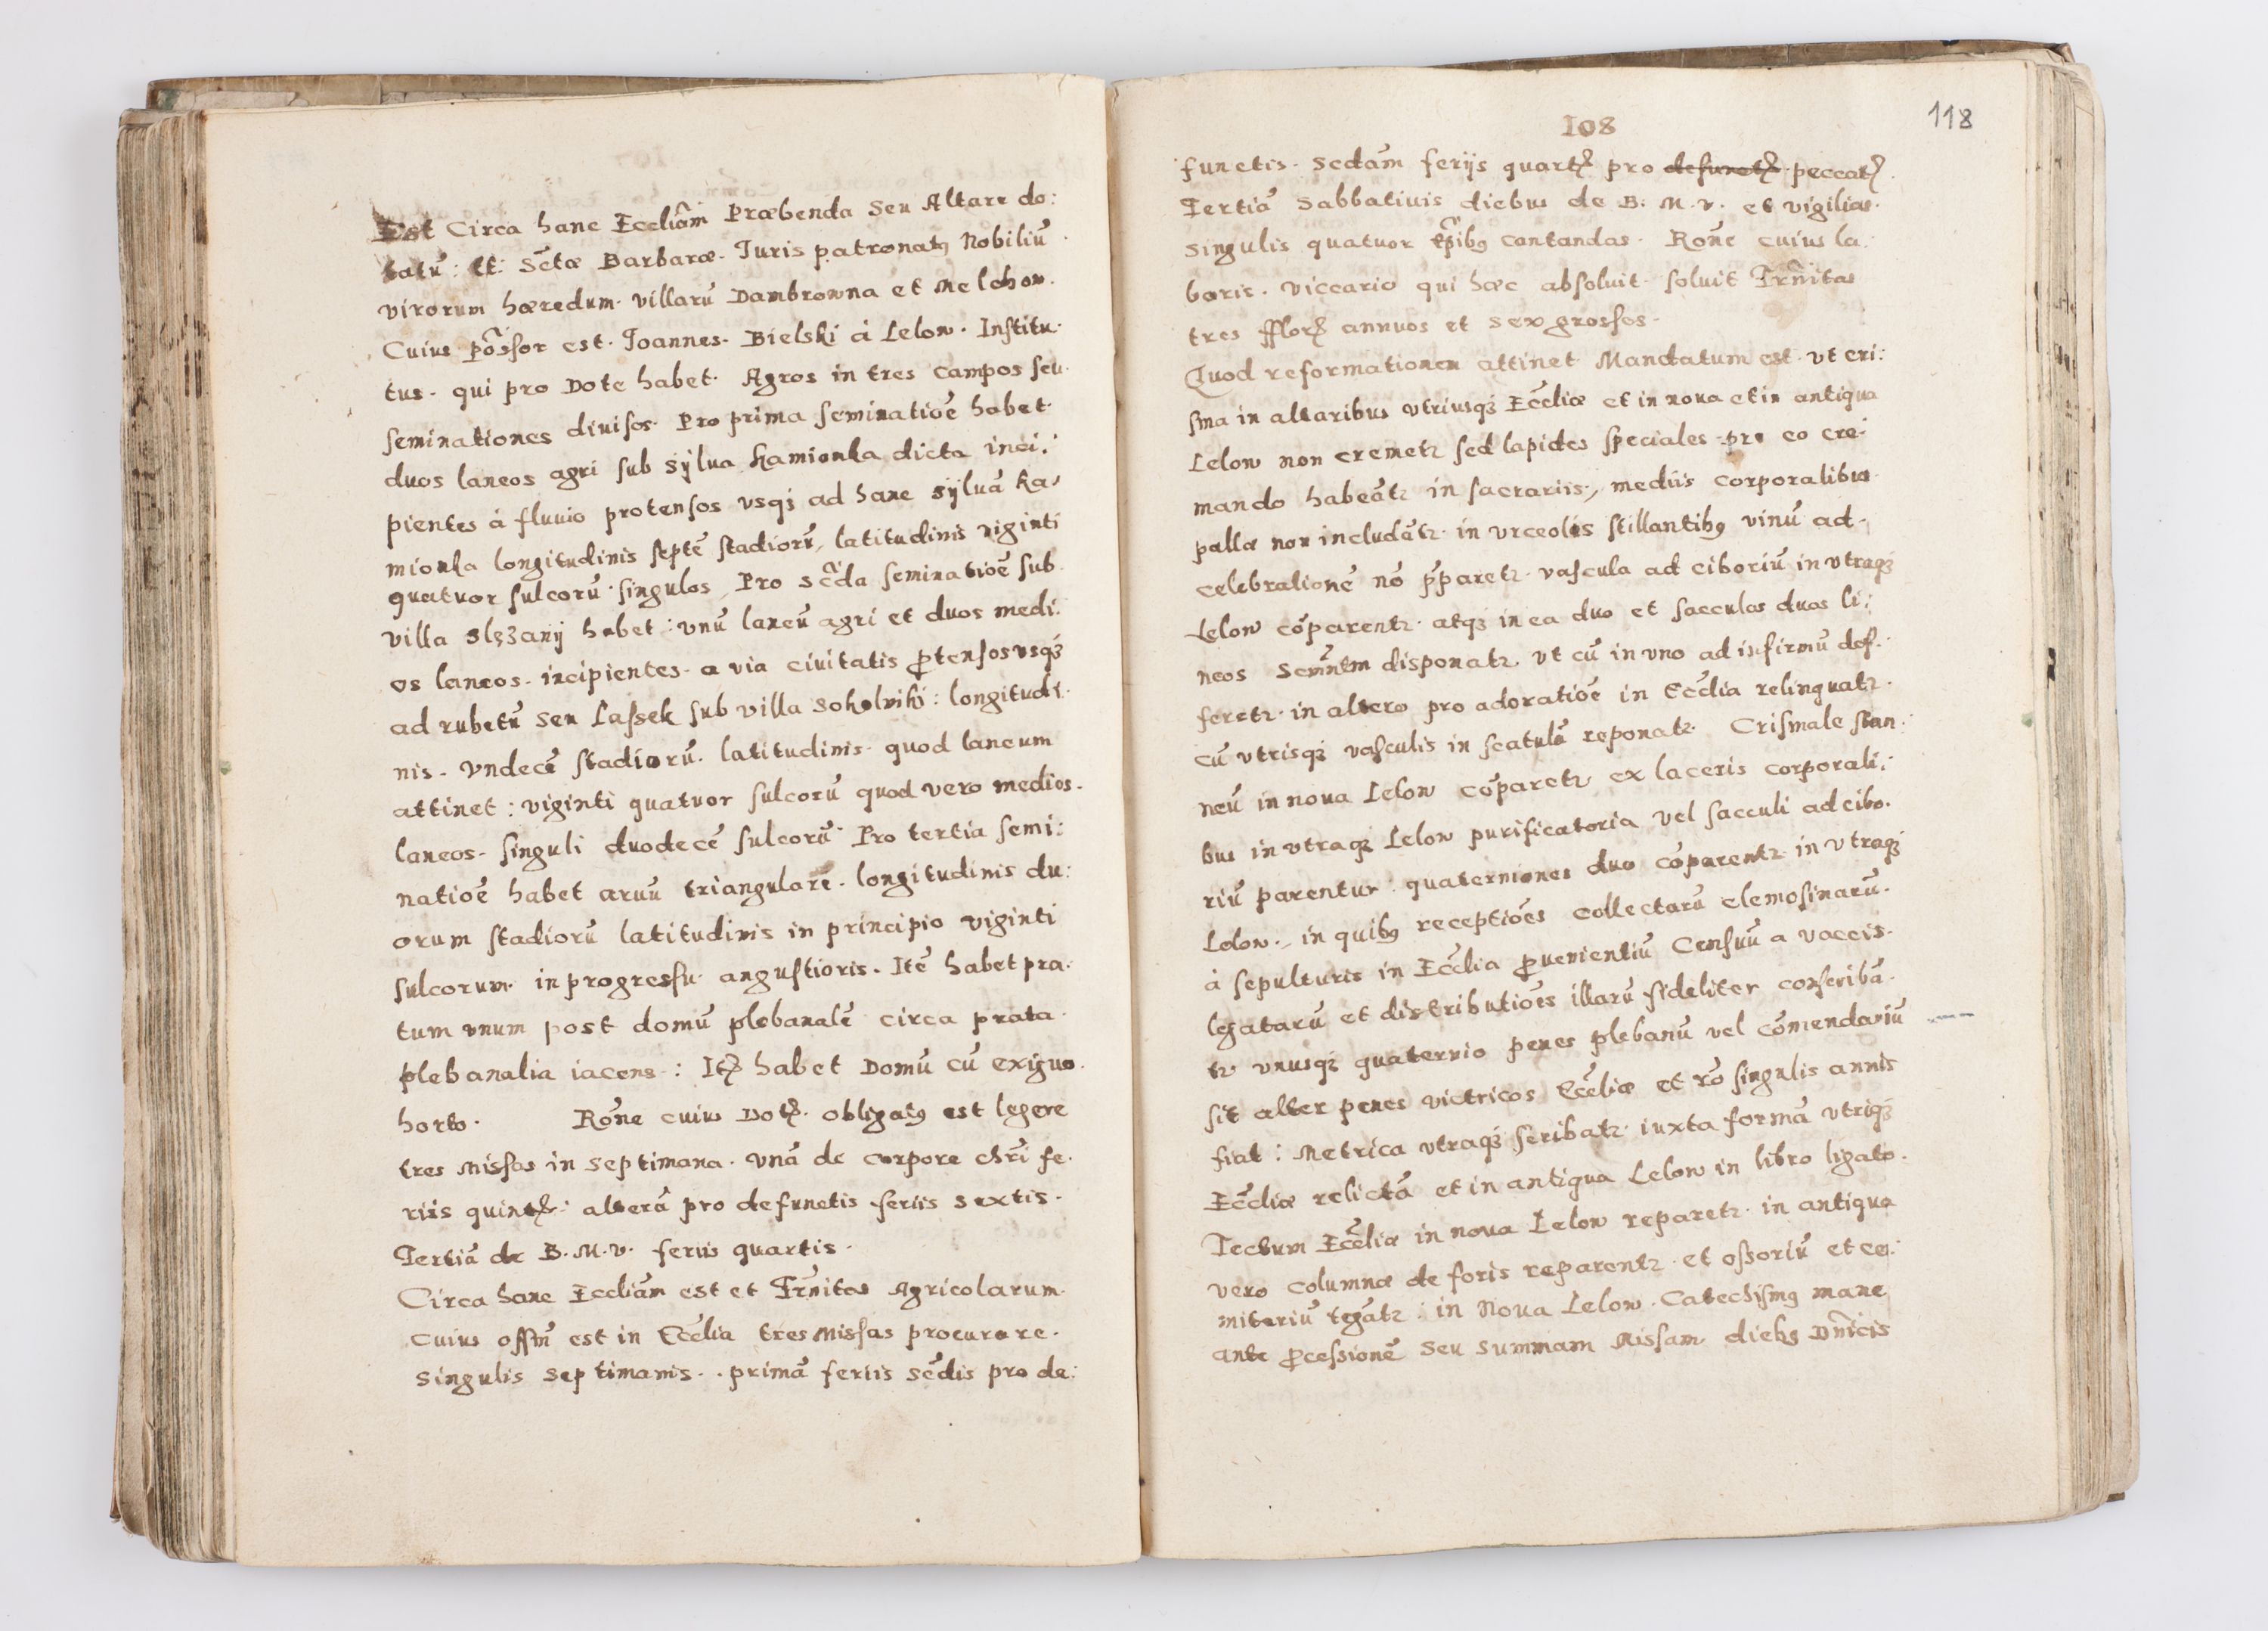 Est Circa hanc Eccliãm Præbenda Seu Altare do:
tatũ: tt: Sctæ Barbaræ. Juris patronatꝰ Nobiliũ
virorum hæredum. villarũ Dambrowna et Melchow.
Cuius põssor est. Joannes. Bielski à Lelow. Institu.
tus. qui pro Dote habet. Agros in tres campos seu
seminationes diuisos. Pro prima seminatiõe habet.
duos laneos agri sub Sylua Kamionka dicta inci:
pientes à fluuio protensos vsqꝫ ad hanc syluã Ka,
mionka longitudinis septẽ stadiorũ, latitudinis viginti
quatuor sulcorũ singulos, Pro Scda seminatiõe sub
villa Slęzanÿ habet: vnũ laneũ agri et duos medi:
os laneos. incipientes. a via ciuitatis ꝓtensos vsqꝫ
ad rubetũ seu Lassek sub villa Sokolniki: longitudi.
nis. vndecẽ stadiorũ. latitudinis. quod laneum
attinet: viginti quatuor sulcorũ quod vero medios.
laneos. singuli duodecẽ sulcorũ. Pro tertia semi:
natiõe habet aruũ triangularẽ. longitudinis du:
orum stadiorũ latitudinis in principio viginti
sulcorum. in progressu. angustioris. Itẽ habet pra.
tum vnum post domũ plebanalẽ circa prata.
plebanalia iacens: Itꝭ habet Domũ cũ exiguo.
horto. Rõne cuius Dotꝭ. obligatꝰ est legere
tres Missas in septimana. vnã de corpore chr̃i fe.
riis quintꝭ: alterã pro defunctis feriis sextis.
Tertiã de B. M. V. feriis quartis.
Circa hanc Eccliãm est et Fr̃nitas Agricolarum.
cuius offm̃ est in Ecclia tres Missas procurare.
Singulis septimanis.. primã feriis scdis pro de:
108
118
functis. Scdam ferijs quartꝭ pro defunctꝭ peccatꝭ.
Tertiã Sabbatiuis diebus de B. M. V. et vigilias.
Singulis quatuor tp̃ibꝰ cantandas. Rõne cuius la:
boris. viccario qui hæc absoluit. soluit Fr̃nitas
tres fflorꝭ annuos et sex grossos.
Quod reformationem attinet Mandatum est. vt cri:
sma in altaribus vtriusqꝫ Eccliæ et in noua et in antiqua
Lelow non cremetꝛ sed lapides speciales pro eo cre:
mando habeãtꝛ in sacrariis, mediis corporalibus
palla non includãtꝛ. in vrceolis stillantibꝰ vinũ ad.
celebrationẽ nõ p̃paretꝛ. vascula ad ciboriũ in vtraqꝫ
Lelow cõparentꝛ. atqꝫ in ea duo et sacculos duos li:
neos Scm̃ntm disponatꝛ. vt cũ in vno ad infirmũ def:
feretꝛ. in altero pro adoratiõe in Ecclia relinquatꝛ.
cũ vtrisqꝫ vasculis in scatula reponatꝛ. Crismale stan:
neũ in noua Lelow cõparetꝛ ex laceris corporali:
bus in vtraqꝫ Lelow purificatoria vel sacculi ad cibo.
riũ parentur. quaterniones duo cõparentꝛ in vtraqꝫ
Lelow., in quibꝰ receptiões collectarũ elemosinarũ.
à sepulturis in Ecclia ꝓuenientiũ Censuũ a vaccis.
legatarũ et distributiões illarũ fideliter conscribã.
tꝛ vnusqꝫ quaternio penes plebanũ vel cõmendariũ
sit alter penes victricos Eccliæ et rõ singulis annis
fiat: Metrica vtraqꝫ scribatꝛ. iuxta formã vtriqꝫ
Eccliæ relictã et in antiqua Lelow in libro ligato.
Tectum Eccliæ in noua Lelow reparetꝛ. in antiqua
vero columnæ de foris reparentꝛ. et ossoriũ et cœ:
miteriũ tegãtꝛ: in Noua Lelow. Catechismꝰ mane
ante ꝓcessionẽ seu summam Missam diebꝰ Dn̄icis